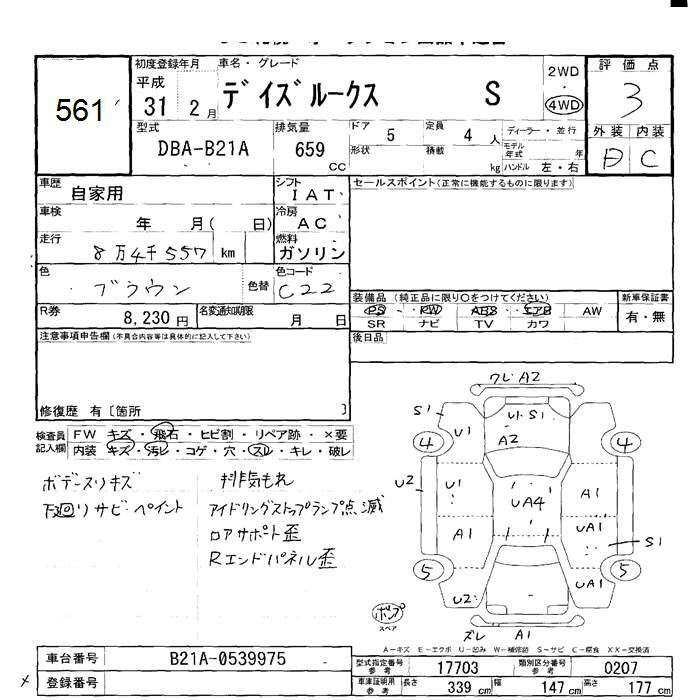 561
初度登録年月
平成
31 2月
車名・グレード
デイズルークス S
2WD
4WD
評価点
3
外装 内装
D C
型式
DBA-B21A
排気量
659
CC
ドア 5
定員 4 人
形状
積載 kg
ディーラー・並行
モデル年式 年
ハンドル 左・右
車歴
自家用
シフト
IAT
セールスポイント(正常に機能するものに限ります)
車検
年 月( 日)
冷房
AC
走行
8万4千557 km
燃料
ガソリン
色
ブラウン
色替
色コード
C22
R券
8,230円
名変通知期限
月 日
装備品 (純正品に限り○をつけてください)
PS ・ PW ・ ABS ・ エアB ・ AW
SR ナビ TV カワ
新車保証書
有・無
後日品
注意事項申告欄(不具合内容等は具体的に記入して下さい)
修復歴 有〔箇所 〕
検査員記入欄
FW キズ・飛石・ヒビ割・リペア跡・×要
内装 キズ・汚レ・コゲ・穴・スレ・キレ・破レ
ボデースリキズ
下廻りサビペイント
排気もれ
アイドリングストップランプ点滅
ロアサポート歪
Rエンドパネル歪
ワレ A2
S1
U1
U1・S1
A2
4
4
U2
U1
UA4
A1
A1
UA1
S1
5
5
U2
UA1
ポンプ
スペア
ズレ A1
A-キズ E-エクボ U-凹み W-補修跡 S-サビ C-腐食 XX-交換済
車台番号
B21A-0539975
登録番号
型式指定番号
参考
17703
類別区分番号
参考
0207
車庫証明用
参考
長さ 339 cm
幅 147 cm
高さ 177 cm